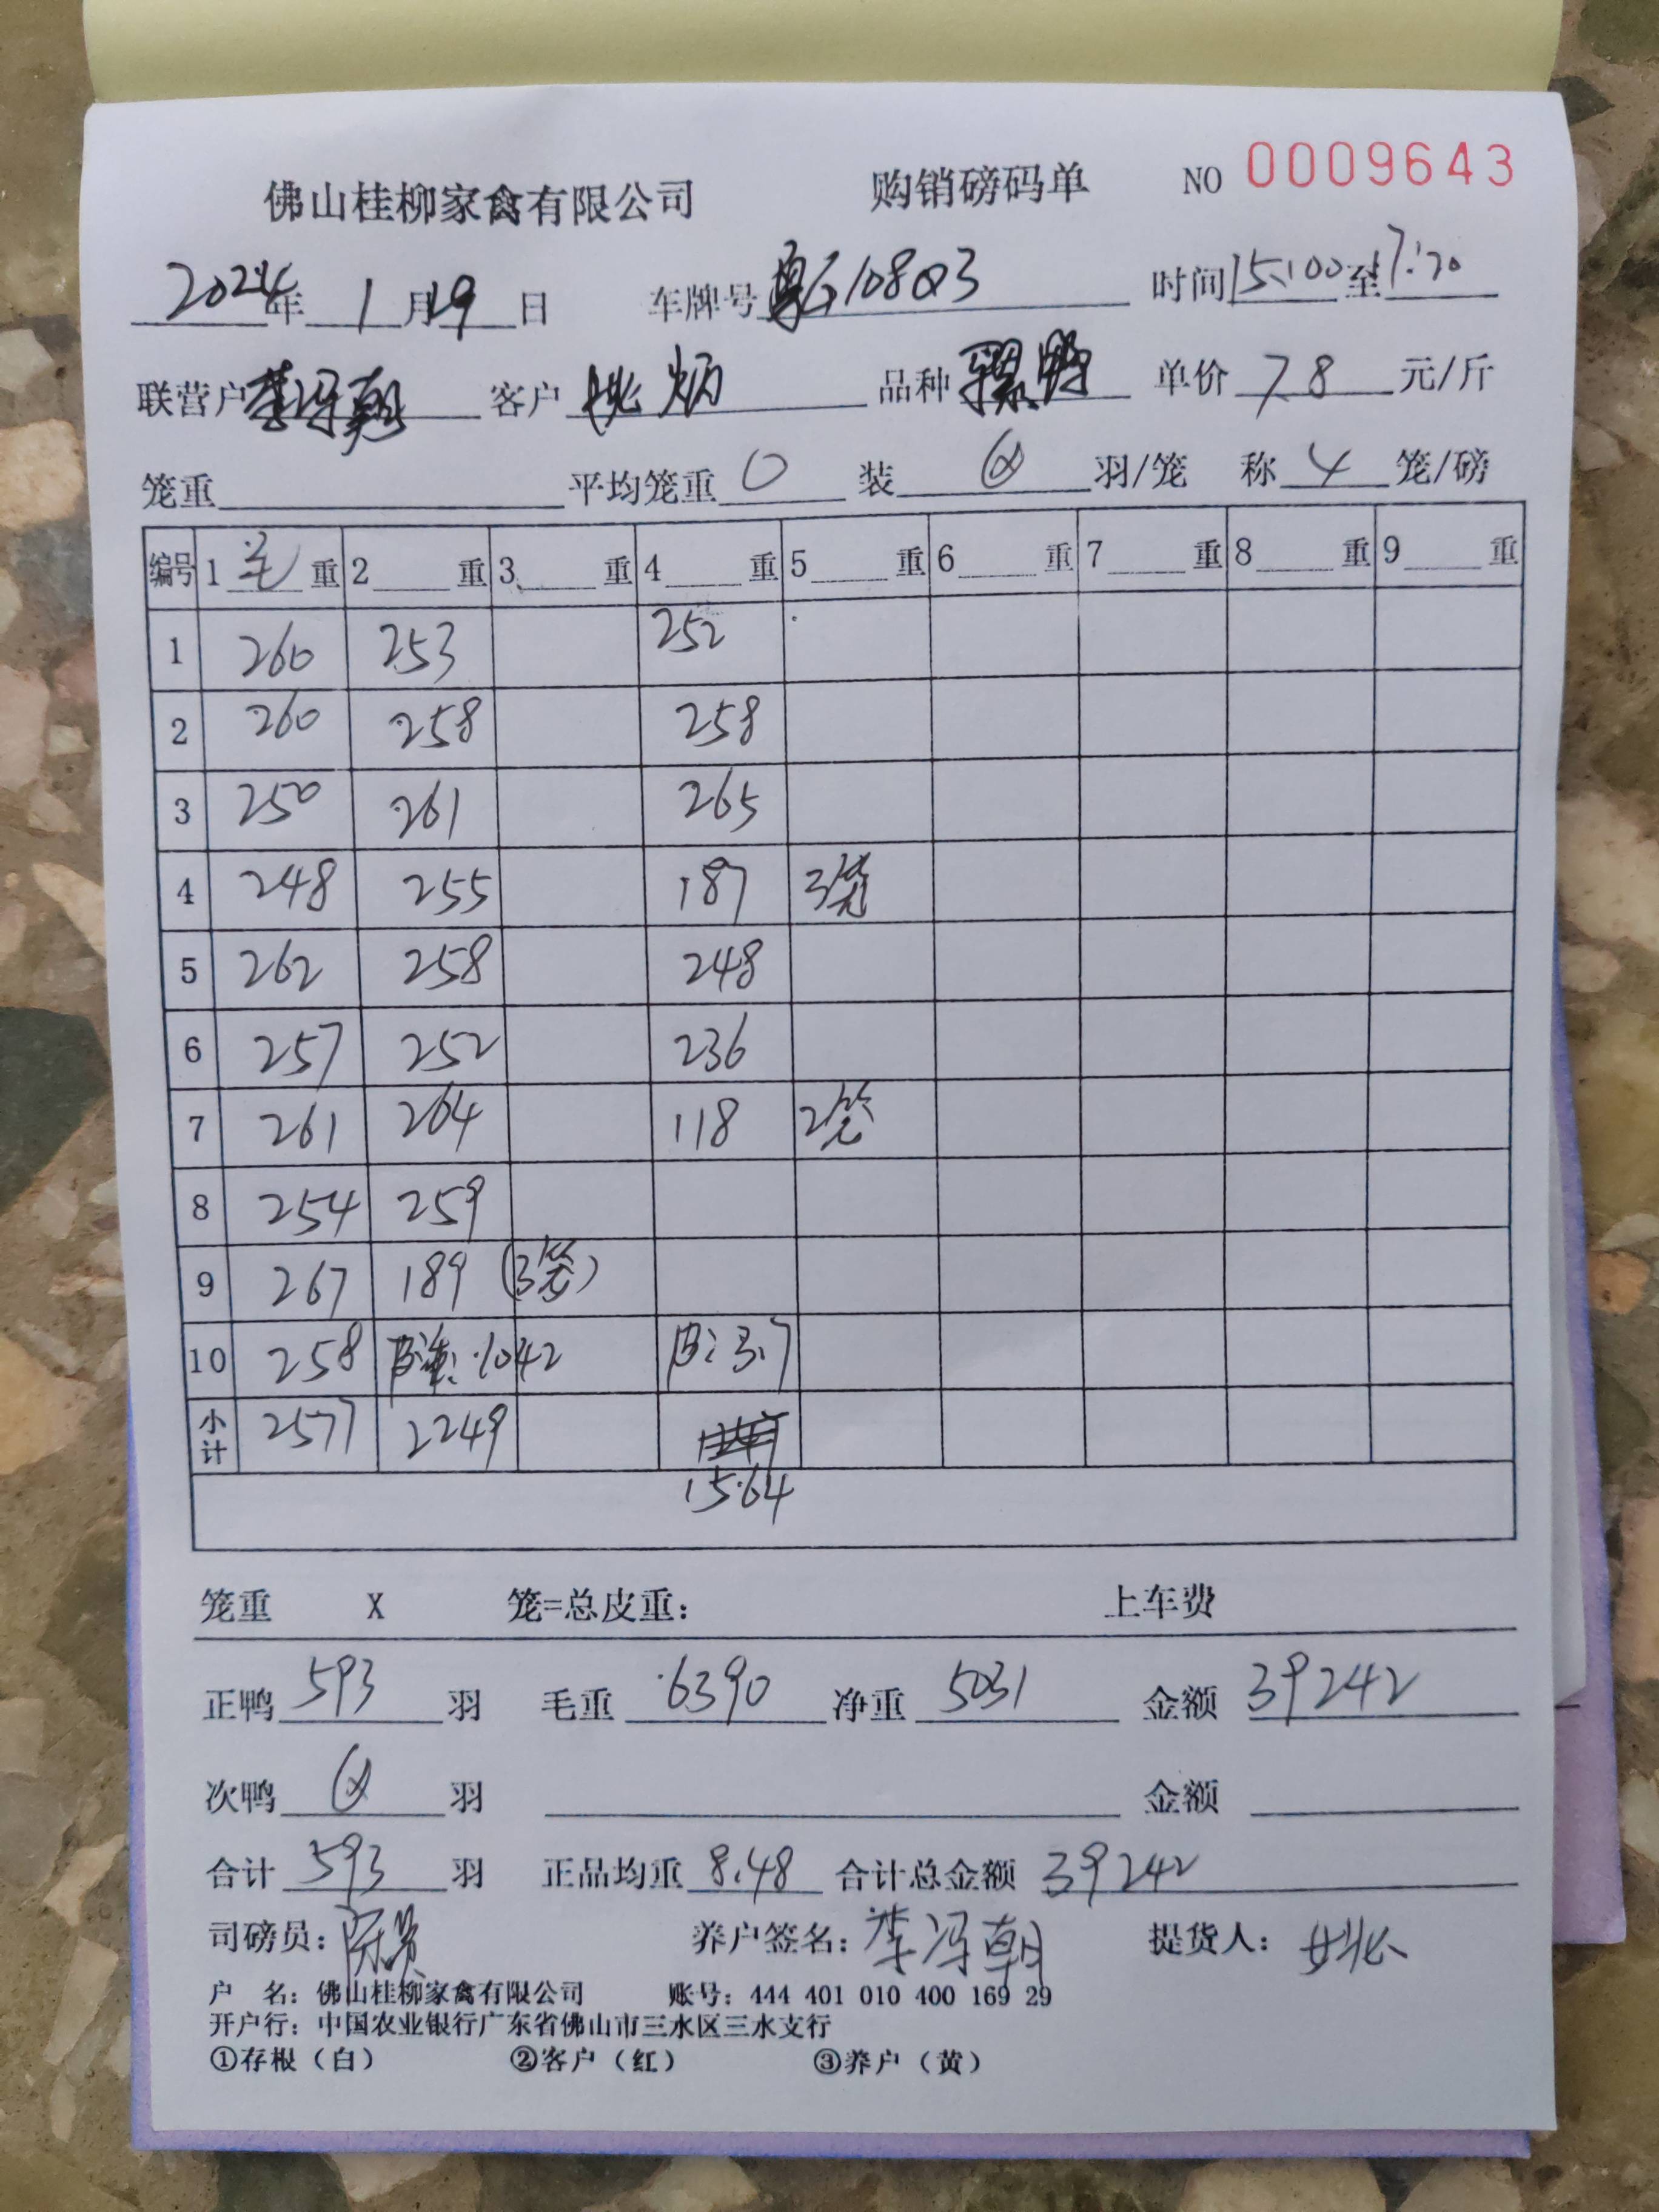 佛山桂柳家禽有限公司 购销磅码单 NO 0009643
2024年 1月19日 车牌号 粤G108Q3 时间15:00至17:20
联营户 李冯朝 客户 姚炳 品种 骡鸭 单价 7.8 元/斤
笼重 平均笼重 0 装 羽/笼 称 4 笼/磅
编号 1 毛 重 2 重 3 重 4 重 5 重 6 重 7 重 8 重 9 重
1 260 253 252
2 260 258 258
3 250 261 265
4 248 255 187 3笼
5 262 258 248
6 257 252 236
7 261 264 118 2笼
8 254 259
9 267 189 (3笼)
10 258 皮重:1042 皮:3.7
小计 2577 2249
1564
笼重 X 笼=总皮重: 上车费
正鸭 593 羽 毛重 6390 净重 5031 金额 39242
次鸭 羽 金额
合计 593 羽 正品均重 8.48 合计总金额 39242
司磅员: 养户签名: 李冯朝 提货人:
户 名: 佛山桂柳家禽有限公司 账号: 444 401 010 400 169 29
开户行: 中国农业银行广东省佛山市三水区三水支行
①存根（白） ②客户（红） ③养户（黄）